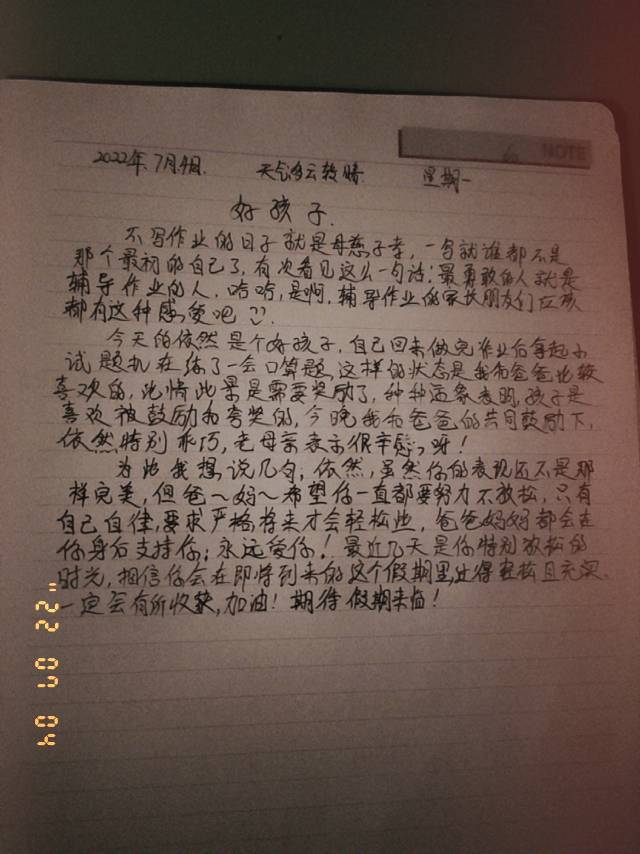 NOTE
2022年7月4日. 天气多云转晴. 星期一
好孩子.
不写作业的日子就是母慈子孝,一写就谁都不是
那个最初的自己了,有次看见这么一句话:最勇敢的人就是
辅导作业的人,哈哈,是啊,辅导作业的家长朋友们应该
都有这种感受吧
今天的依然是个好孩子,自己回来做完作业后拿起小
试题机在练了一会口算题,这样的状态是我和爸爸比较
喜欢的,此情此景是需要奖励了,种种迹象表明,孩子是
喜欢被鼓励和夸奖的,今晚我和爸爸的共同鼓励下,
依然特别乖巧,老母亲表示很幸感呀!
为此我想说几句,依然,虽然你的表现还不是那
样完美,但爸~妈~希望你一直都要努力不放松,只有
自己自律,要求严格,将来才会轻松些,爸爸妈妈都会在
你身后支持你;永远爱你!最近几天是你特别放松的
时光,相信你会在即将到来的这个假期里,过得轻松且充实
一定会有所收获,加油!期待假期来临!
"22 07 04